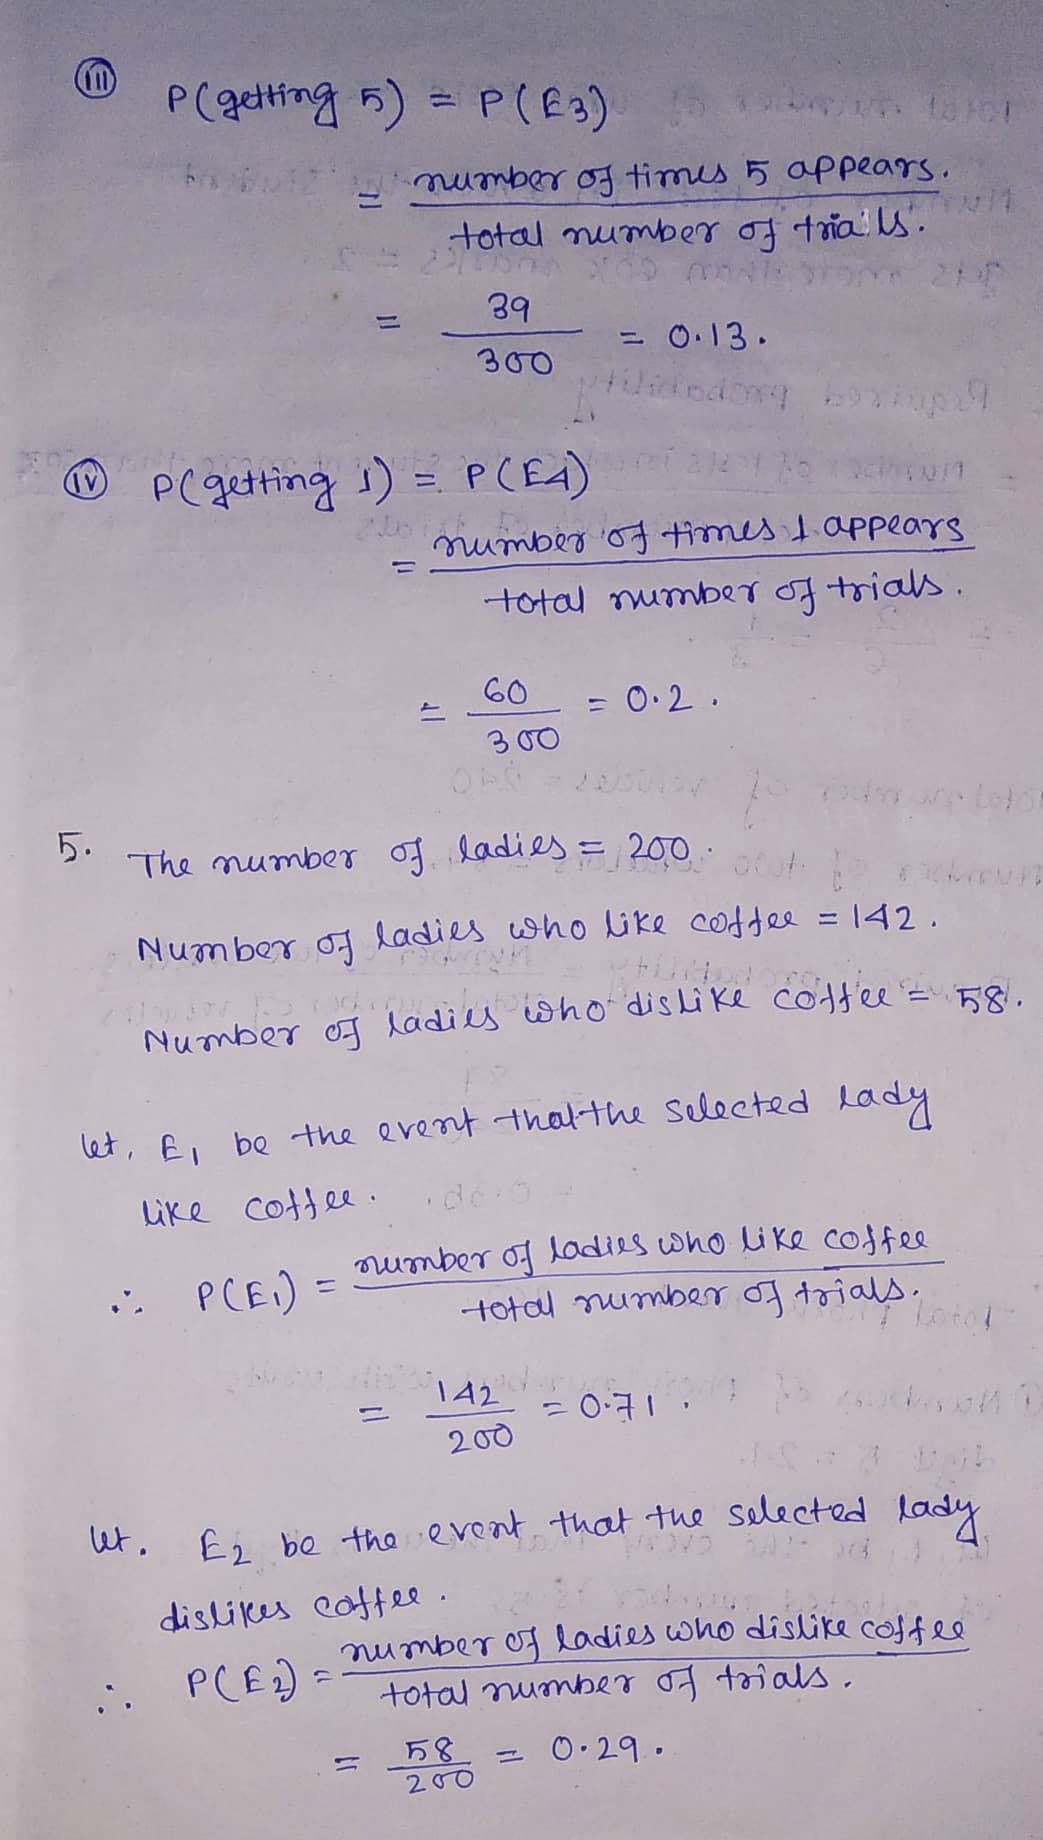 (iii) P(getting 5) = P(E3)
= number of times 5 appears.
total number of trails.
= 39/300 = 0.13.
(iv) P(getting 1) = P(E4)
= number of times 1 appears
total number of trials.
= 60/300 = 0.2.
5. The number of ladies = 200.
Number of ladies who like coffee = 142.
Number of ladies who dislike coffee = 58.
let, E1 be the event that the selected lady
like coffee.
∴ P(E1) = number of ladies who like coffee
total number of trials.
= 142/200 = 0.71.
let. E2 be the event that the selected lady
dislikes coffee.
∴ P(E2) = number of ladies who dislike coffee
total number of trials.
= 58/200 = 0.29.